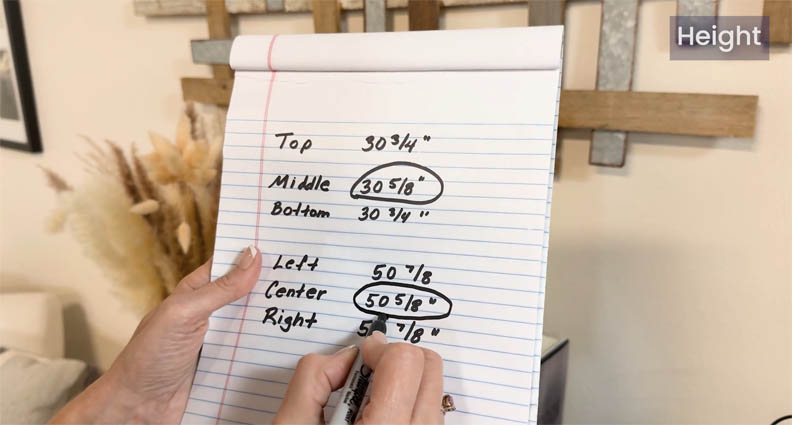 Height
Top 30 3/4"
Middle 30 5/8"
Bottom 30 3/4"
Left 50 7/8
Center 50 5/8"
Right 7/8"